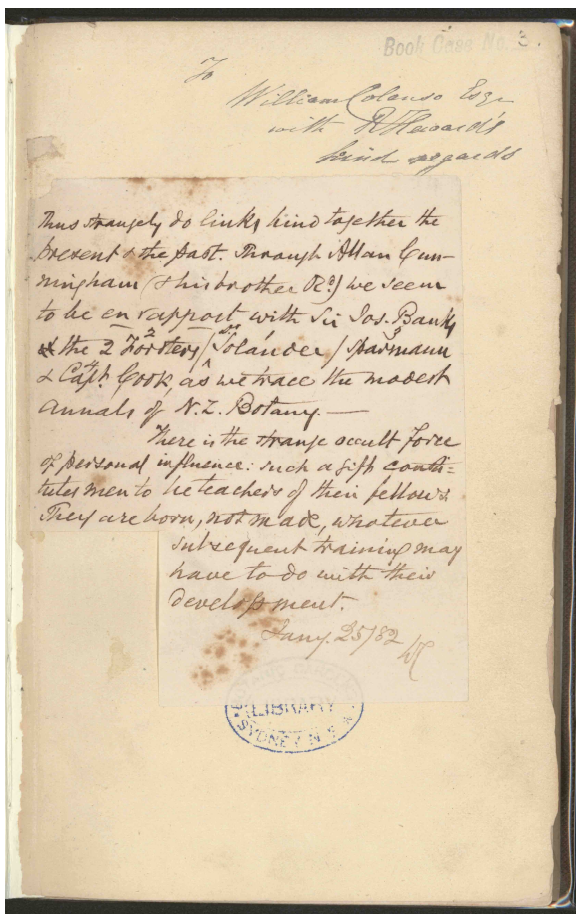 Book Case No. 3.
To
William Colenso Esqr
with R Heward's
kind regards
Thus strangely do links bind together the
present & the past. Through Allan Cun-
ningham (& his brother Rd.) we seem
to be en rapport with Sir Jos. Banks
& the 2 Forsters / Dr Solander / Sparmann
& Capt. Cook, as we trace the modest
annals of N.Z. Botany. —
There is the strange occult force
of personal influence: such a gift consti-
tutes men to be teachers of their fellows.
They are born, not made, whatever
subsequent training may
have to do with their
development.
Jany. 25/82
BOTANIC GARDENS
LIBRARY
SYDNEY N.S.W.